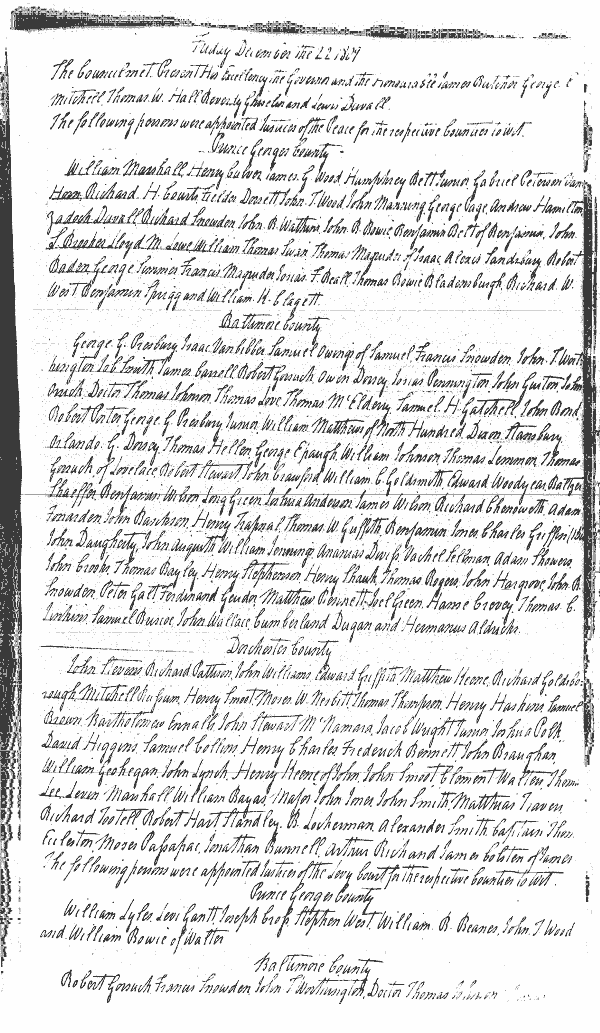 Friday December the 22 18
The Council met. Present His Excellency the Governor and the Honourable James Butcher George E
Mitchell, Thomas W. Hall Reverdy Ghiselin and Lewis Duvall.
The following persons were appointed Justices of the Peace for the respective Counties to Wit.
Prince Georges County
William Marshall, Henry Culver, James G. Wood Humphrey Belt Junior Gabriel Peterson Van
Horn, Richard H. Courts Fielder Dorsett John T. Wood John Manning George Page, Andrew Hamilton
Zadock Duvall, Richard Snowden, John B. Watkins, John B. Bowie Benjamin Belt of Benjamin, John
S. Brooke Lloyd M. Lowe William Thomas Swan Thomas Magruder of Isaac Alexis Lansdary Robert
Baden, George Semmes Francis Magruder Josias F. Beall, Thomas Bowie Bladensburgh, Richard W.
West Benjamin Sprigg and William H. Clagett
Baltimore County
George G. Presbury Isaac Vanbibber Samuel Owings of Samuel, Francis Snowden, John T. Wort
hington Job Smith James Carroll Robert Gorsuch Owen Dorsey Josias Pennington John Guiton John
Orrick, Doctor Thomas Johnson Thomas Love Thomas McElderry Samuel H. Gatchell, John Bond
Robert Porter George G. Presbury Junior, William Matthews of North Hundred Dixon Stansbury
Orlando G. Dorsey, Thomas Hellen George Epaugh William Johnson Thomas Lemmon, Thomas
Gorsuch of Lovelace Robert Stewart John Crawford William C. Goldsmith, Edward Woodyear Baltzer
Shaeffer Benjamin Wilson Long Green Joshua Anderson James Wilson, Richard Chenoworth Adam
Fonarden John Barckson, Henry Trapnal, Thomas W. Griffith Benjamin Jones Charles Griffin
John Daugherty John August William Jennings Ananias Divers Vachel Selman, Adam Showers,
John Grover, Thomas Bayley, Henry Stephenson Henry Shawk Thomas Rogers, John Hargrove, John B.
Snowden, Peter Galt Ferdinand Matthew Bennett, Joel Green, Hanse Creevey, Thomas C.
Jenkins, Samuel Briscoe, John Wallace, Cumberland Dugan and Hermanus Aldricks.
Dorchester County
John Stevens Richard Pattison, John Williams, Edward Griffith Matthew Keene, Richard Goldsbo
rough, Mitchell Russum, Henry Smoot Moses W. Nesbitt, Thomas Thompson, Henry Haskins, Samuel
Brown, Bartholomew Ennalls John Stewart McNamara, Jacob Wright Junior Joshua Polk
David Higgins, Samuel Colson, Henry Charles Frederick Bennett John Braughan,
William Geohegan, John Lynch, Henry Keene of John, John Smoot, Clement Walters Thom
Lee, Levin Marshall, William Bayas, Major John Jones John Smith, Matthias Travers
Richard Tootell, Robert Hart Standley, B. Lockerman, Alexander Smith Captain Thos.
Eccleston Moses Passapae, Jonathan Bunnell, Arthur Rich and James Colsten of James
The following persons were appointed Justices of the Levy Court for the respective Counties to Wit.
Prince Georges County
William Lyles, Levi Gantt, Joseph Cross, Stephen West, William B. Beanes, John T. Wood
and William Bowie of Walter
Baltimore County
Robert Gorsuch Francis Snowden, John T. Worthington, Doctor Thomas Johnson